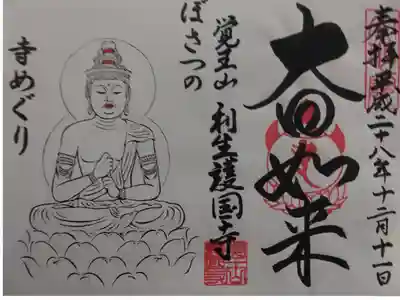 奉拝 平成二十八年十二月十一日
大日如来
覚王山 利生護国寺
ぼさつの
寺めぐり